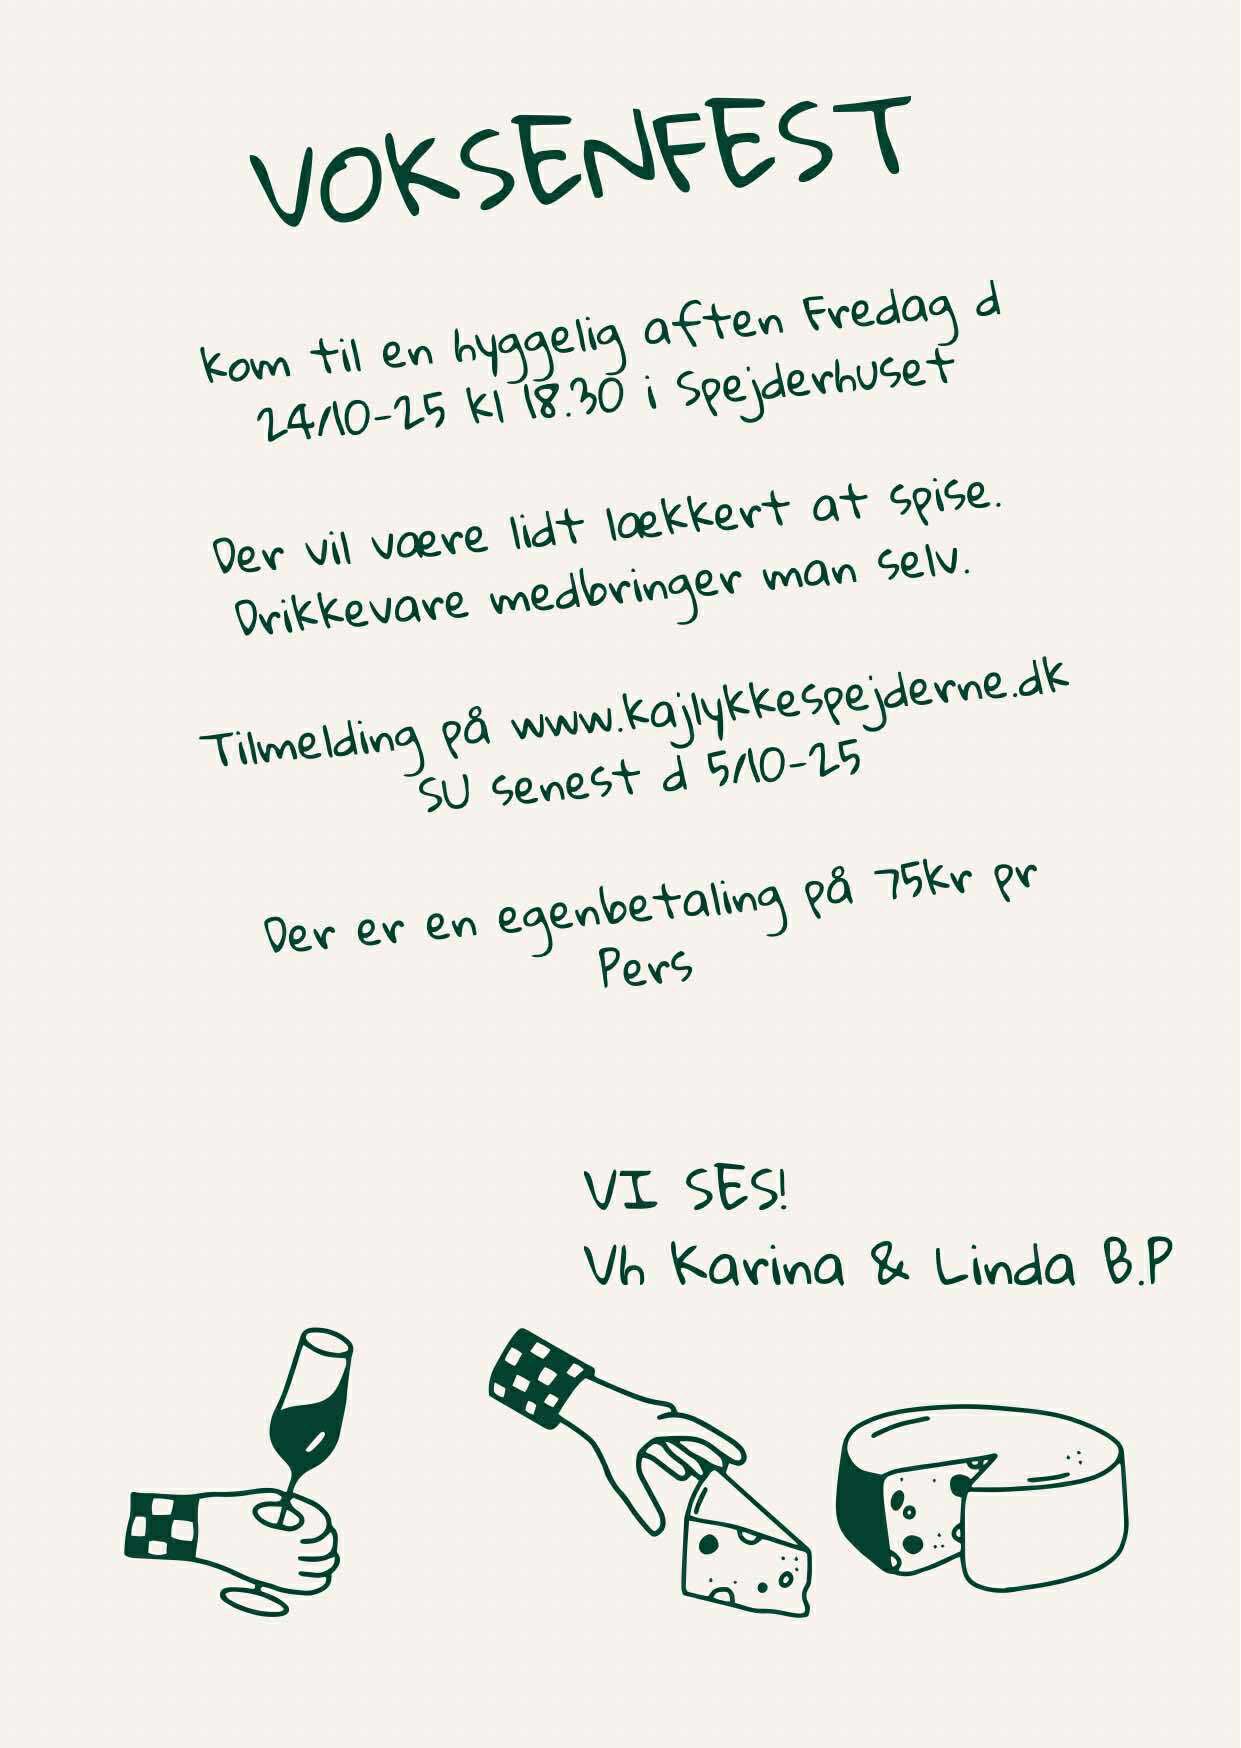 VOKSENFEST
Kom til en hyggelig aften Fredag d
24/10-25 kl 18.30 i Spejderhuset
Der vil være lidt lækkert at spise.
Drikkevare medbringer man selv.
Tilmelding på www.kajlykkespejderne.dk
SU senest d 5/10-25
Der er en egenbetaling på 75kr pr
Pers
VI SES!
Vh Karina & Linda B.P